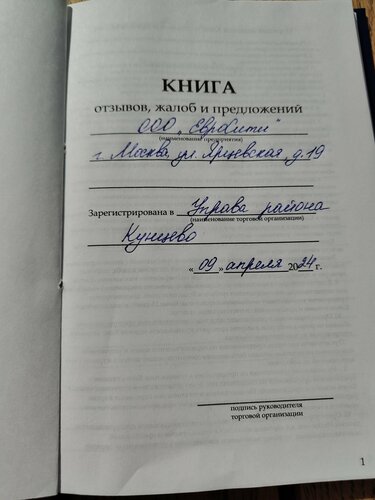 КНИГА
отзывов, жалоб и предложений
ООО „ЕвроСити"
(наименование предприятия)
г. Москва, ул. Ярцевская, д. 19
Зарегистрировано в Управа района
(наименование торговой организации)
Кунцево
«09» апреля 2024 г.
подпись руководителя
торговой организации
1